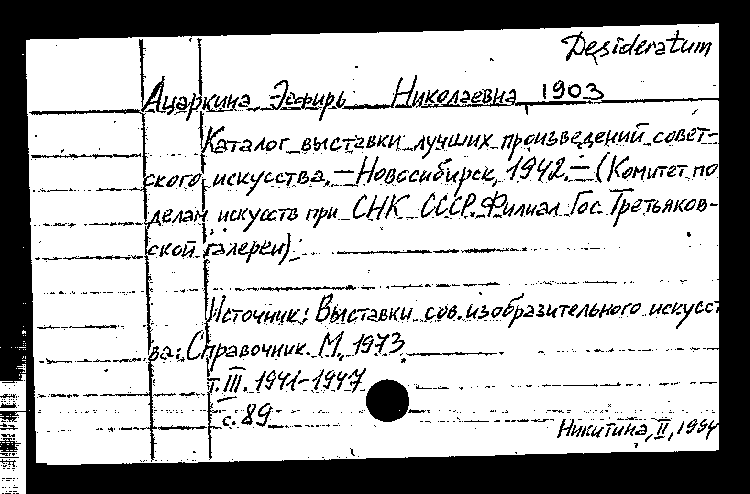 Desideratum
Ацаркина Эсфирь Николаевна, 1903
Каталог выставки лучших произведений совет-
ского искусства. — Новосибирск, 1942. — (Комитет по
делам искусств при СНК СССР. Филиал Гос. Третьяков-
ской галереи).
Источник: Выставки сов. изобразительного искусст
ва: Справочник. М., 1973
т. III. 1941-1947
с. 89
Никитина, II, 1994